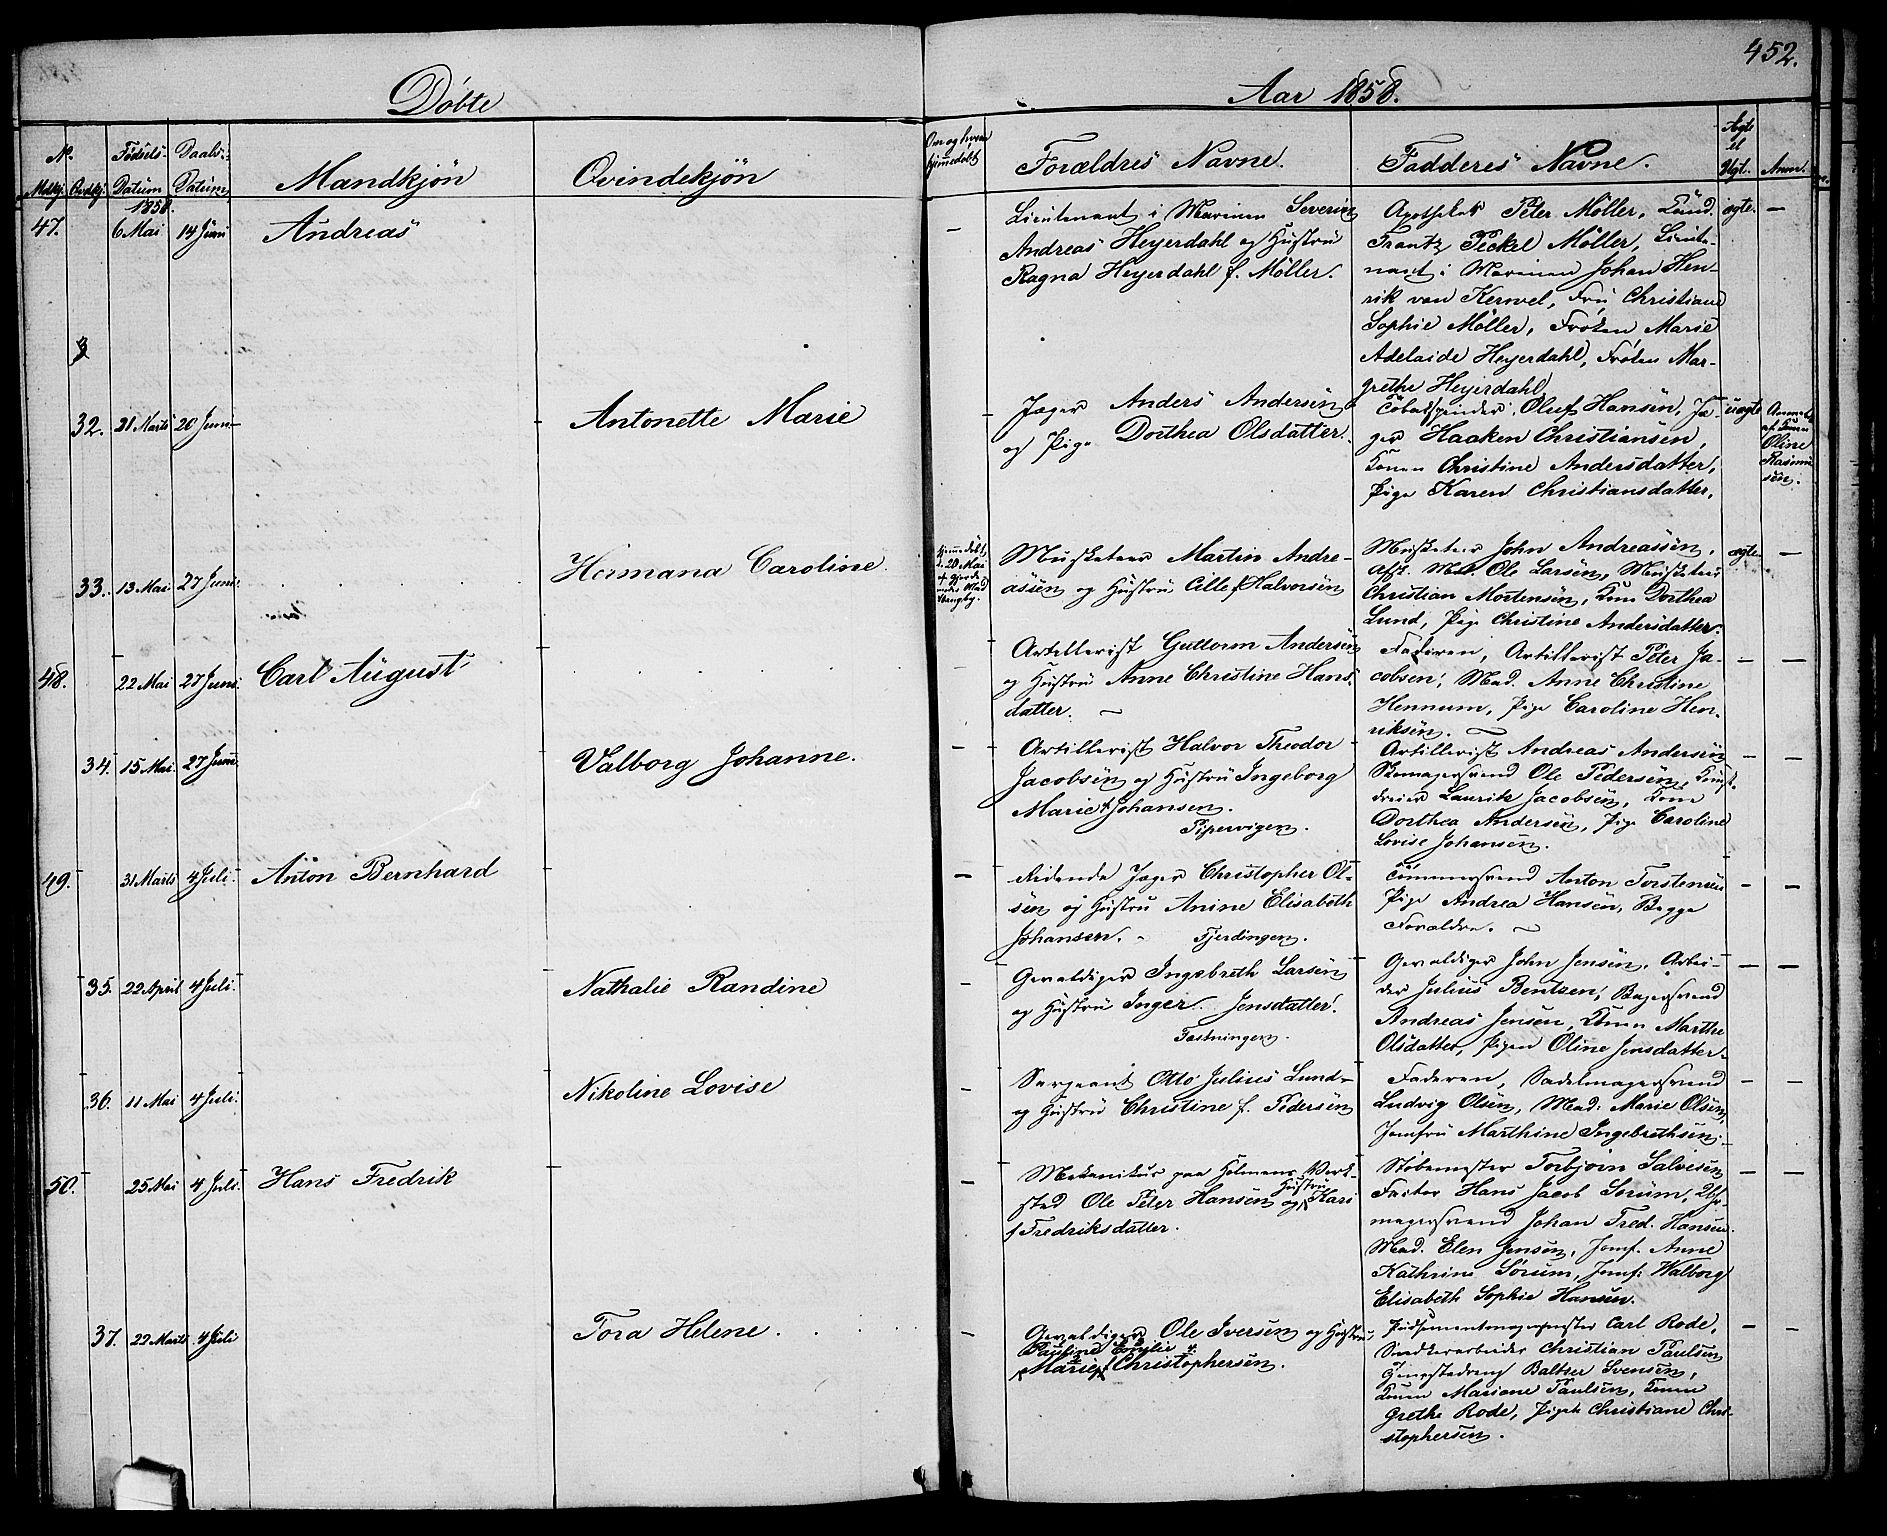 452.
Döbte
Aar 1858.
No. Födsels- Daabs-
Mdkj. Qvdkj. Datum Datum Mandkjön Qvindekjön Om og hvem hjemmedöbt Forældres Navne. Fadderes Navne. Ægte el Uægt. Anm.
1858.
47. 6 Mai 14 Juni Andreas –
Lieutenant i Marinen Severin
Andreas Heyerdahl og Hustru
Ragna Heyerdahl f. Möller.
Apotheker Peter Möller, Kand.
Frantz Peckel Möller, Lieute-
nant i Marinen Johan Hen-
rik von Kerwel, Fru Christiane
Sophie Möller, Fröken Marie
Adelaide Heyerdahl, Fröken Mar-
grethe Heyerdahl
ægte. –
32. 21 Marts 20 Juni Antonette Marie –
Jæger Anders Andersen
og Pige Dorthea Olsdatter.
Tobakspinder Oluf Hansen, Jæ-
ger Haaken Christiansen,
Konen Christine Andersdatter,
Pige Karen Christiansdatter.
uægte
Anmeldt
af Konen
Oline
Rasmu
sen.
33. 13 Mai 27 Juni Hermana Caroline.
Hjemmedöbt
d. 20 Mai
Musketeer Martin Andre-
assen og Hustru Cille f Halvorsen
Musketeer John Andreassen,
Afsk. Mil. Ole Larsen, Musketeer
Christian Mortensen, Kone Dorthea
Lund, Pige Christine Andersdatter.
ægte –
48. 22 Mai 27 Juni Carl August
Artillerist Guttorm Andersen
og Hustru Anne Christine Hans-
datter.
Faderen, Artillerist Peter Ja-
cobsen, Mad. Anne Christine
Hennum, Pige Caroline Hen-
riksen.
– –
34. 15 Mai. 27 Juni Valborg Johanne. –
Artillerist Halvor Theodor
Jacobsen og Hustru Ingeborg
Marie f Johansen.
Pipervigen.
Artillerist Andreas Andersen
Skomagersvend Ole Pedersen, Kunst-
dreier Lauritz Jacobsen, Kone
Dorthea Andersen, Pige Caroline
Lovise Johansen.
– –
49. 31 Marts 4 Juli. Anton Bernhard –
Ridende Jæger Christopher Ol-
sen og Hustru Anine Elisabeth
Johansen. Fjerdingen.
Tömmersvend Anton Torstensen
Pige Andrea Hansen, Begge
Forældre.
– –
35. 22 April 4 Juli. Nathalie Randine –
Gevaldiger Ingebreth Larsen
og Hustru Inger Jensdatter.
Fæstningen.
Gevaldiger John Jensen, Arbei-
der Julius Bentzen, Bagersvend
Andreas Jensen, Konen Marthe
Olsdatter, Pigen Oline Jensdatter.
– –
36. 11 Mai 4 Juli. Nikoline Lovise –
Sergeant Otto Julius Lund
og Hustru Christine f. Pedersen
Faderen, Sadelmagersvend
Ludvig Olsen, Mad. Marie Olsen,
Jomfru Marthine Ingebrethsen.
– –
50. 25 Mai 4 Juli. Hans Fredrik –
Mekanikus paa Holmens Værk-
sted Ole Peter Hansen og Hustru Kari
f Fredriksdatter.
Stöbemester Torbjörn Salvesen
Factor Hans Jacob Sörum,
magersvend Johan Fred. Hansen
Mad. Elen Jensen, Jomf. Anne
Kathrine Sörum, Jomf. Walborg
Elisabeth Sophie Hansen.
– –
37. 29 Marts 4 Juli Tora Helene. –
Gevaldiger Ole Iversen og Hustru
Pauline Emilie
Marie f Christophersen.
Carl Rode,
Snedkerarbeider Christian Paulsen
Baltser Svensen,
Konen Mariane Paulsen, Konen
Grethe Rode, Pigen Christiane Chri-
stophersen.
– –